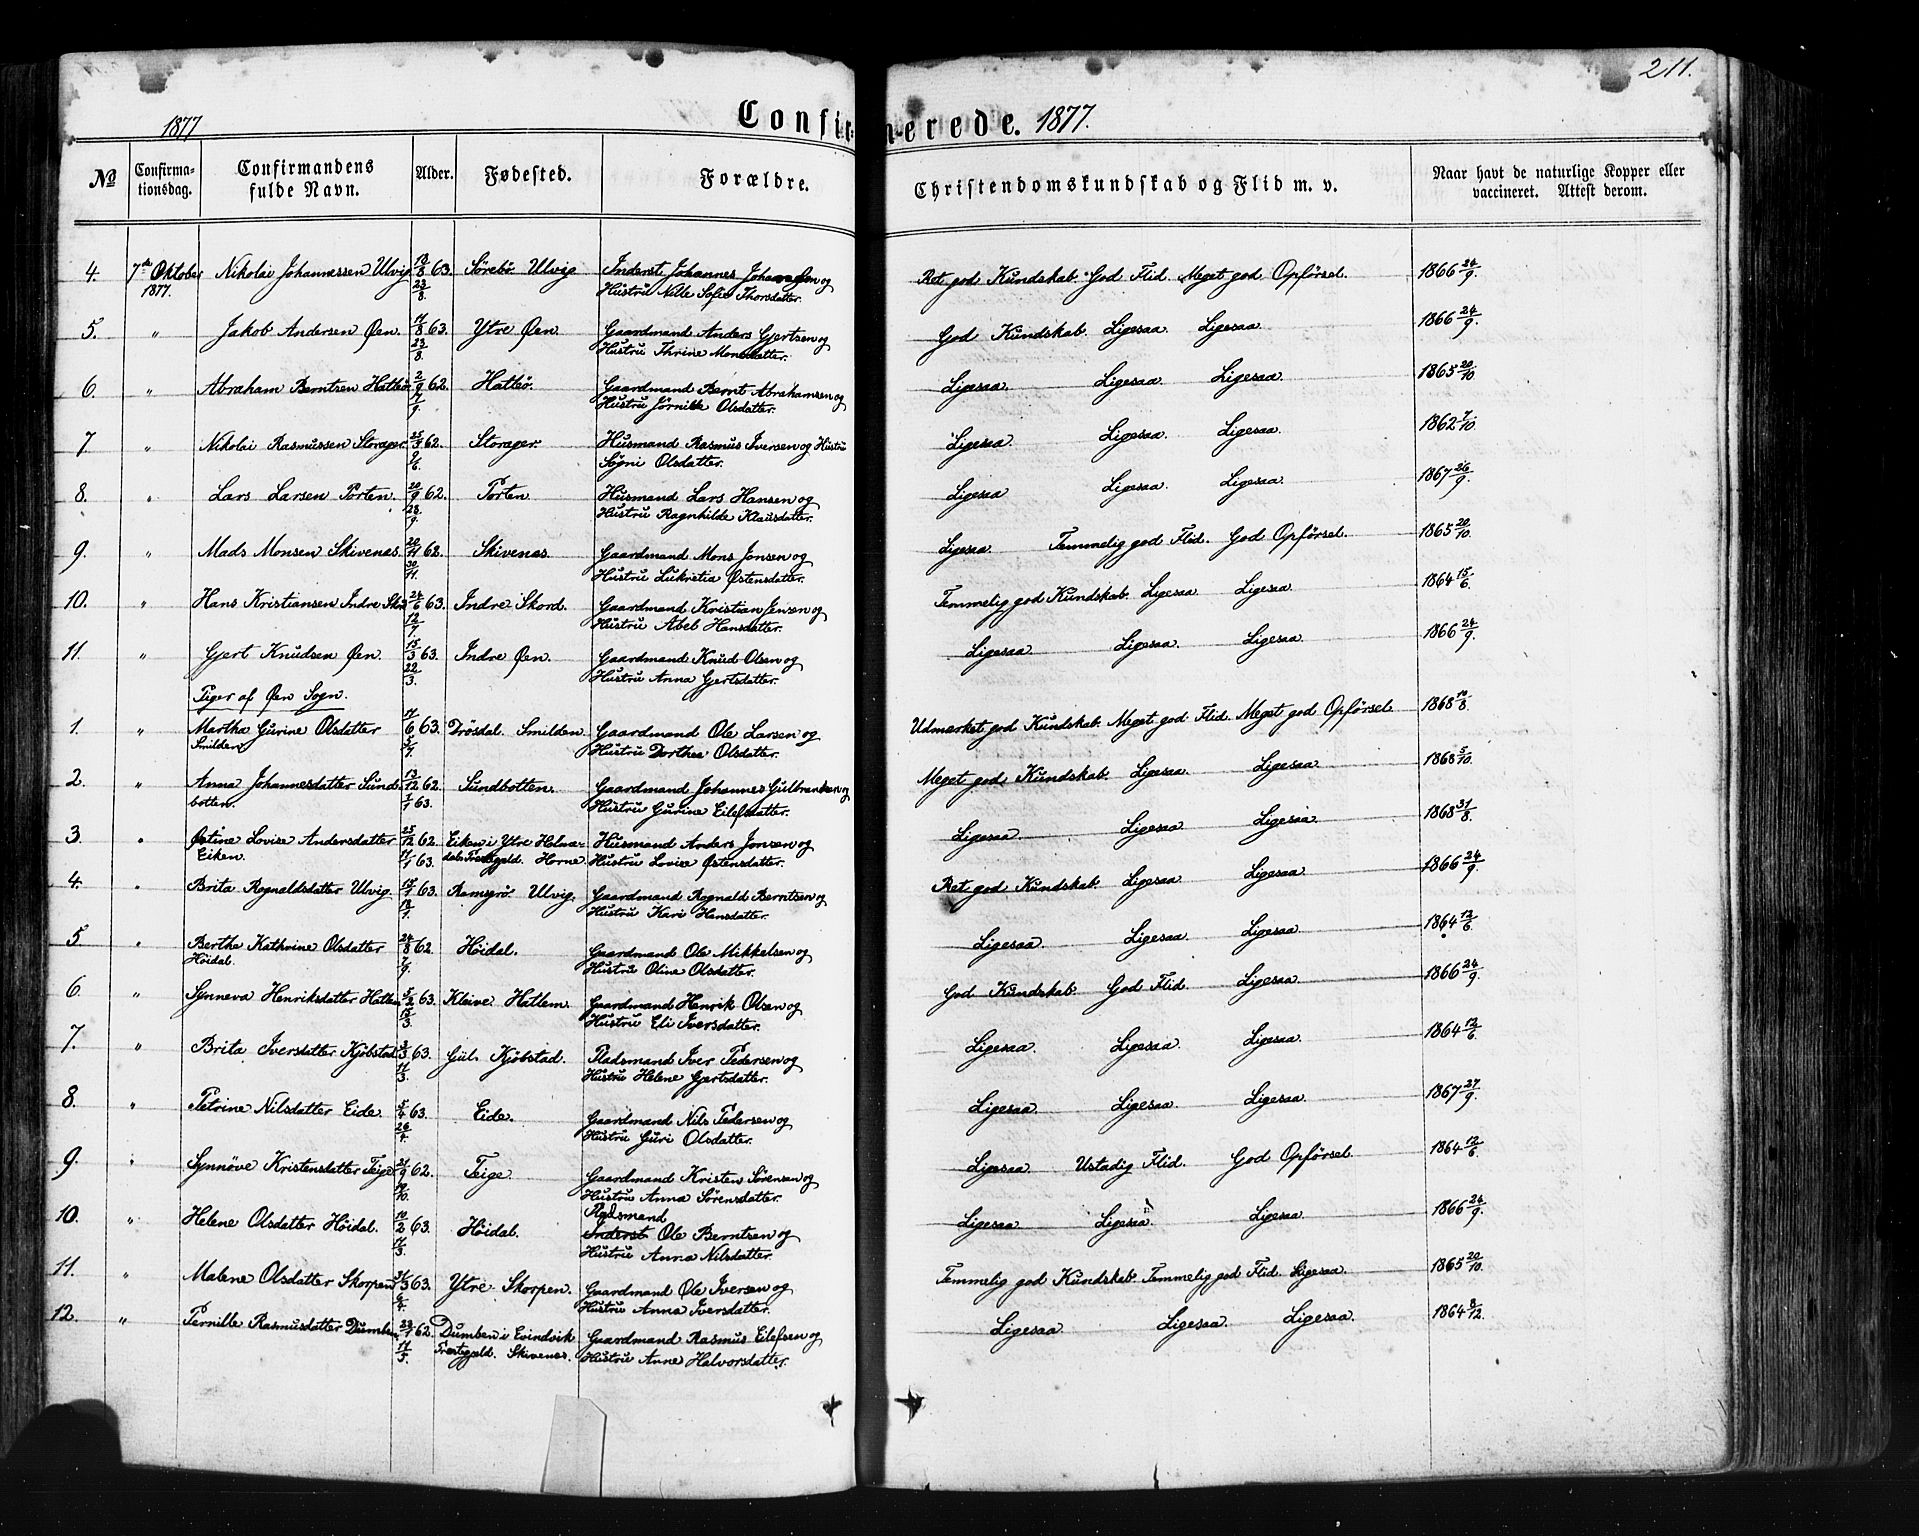 211.
1877
Confirmerede. 1877.
No Confirmationsdag. Confirmandens fulde Navn. Alder. Fødested. Forældre. Christendomskundskab og Flid m. v. Naar havt de naturlige Kopper eller vaccineret. Attest derom.
4. 7de Oktober 1877. Nikolai Johannessen Ulvig 63. 23/8. Sørebø Ulvig Inderst Johannes og Hustru Nille Sofie Thorsdatter. Ret god Kundskab. God Flid. Meget god Opførsel. 1866 24/9.
5. " Jakob Andersen Øen. 63. 23/8. Ytre Øen. Gaardmand Anders Gjertsen og Hustru Thrine Monsdatter. God Kundskab. Ligesaa. Ligesaa. 1866 24/9.
6. " Abraham Berntsen Hatleø. 2/9 62. Hatleø. Gaardmand Bernt Abrahamsen og Hustru Olsdatter. Ligesaa. Ligesaa. Ligesaa. 1865 20/10.
7. " Nikolai Rasmussen Storager. 25/3 62. 9/6. Storager. Husmand Rasmus Iversen og Hustru Olsdatter. Ligesaa. Ligesaa. Ligesaa. 1862 7/10.
8. " Lars Larsen Porten. 20/9 62. 28/9. Porten. Husmand Lars Hansen og Hustru Ragnhilde Klausdatter. Ligesaa Ligesaa. Ligesaa. 1867 26/9.
9. " Mads Monsen Skivenes. 20/11 62. 30/11. Skivenes. Gaardmand Mons Jonsen og Hustru Lukretia Østensdatter. Ligesaa. Temmelig god Flid. God Opførsel. 1865 20/10.
10. " Hans Kristiansen Indre 24/6 63. 12/7. Indre Skord. Gaardmand Kristian Jensen og Hustru Abel Hansdatter. Temmelig god Kundskab. Ligesaa. Ligesaa. 1864 15/6.
11. " Gjert Knudsen Øen. 15/3 63. 22/3. Indre Øen. Gaardmand Knud Olsen og Hustru Anna Gjertsdatter. Ligesaa. Ligesaa. Ligesaa. 1866 24/9.
Piger af Øen Sogn.
1. " Martha Gurine Olsdatter Smilden 63. 5/7. Drøsdal Smilden. Gaardmand Ole Larsen og Hustru Dorthea Olsdatter. Udmærket god Kundskab. Meget god Flid. Meget god Opførsel. 1868
2. " Anna Johannesdatter Sundbotten. 13/12 62. 1/1 63. Sundbotten. Gaardmand Johannes Gulbrandsen og Hustru Gurine Eilefsdatter. Meget god Kundskab. Ligesaa. Ligesaa. 1868 5/10.
3. " Østine Lovise Andersdatter Eiken. 25/12 62. 11/1 63. Eiken i Ytre Præstegjeld. Horne. Husmand Anders Jonsen og Hustru Lovise Østensdatter. Ligesaa. Ligesaa. Ligesaa. 1868 31/8.
4. " Brita Ragnaldsdatter Ulvig. 63. 18/1. Ramsgrø Ulvig. Gaardmand Ragnald Berntsen og Hustru Kari Hansdatter. Ret god Kundskab. Ligesaa. Ligesaa. 1866 24/9.
5 " Berthe Kathrine Olsdatter Høidal. 24/8 62. 7/9. Høidal. Gaardmand Ole Mikkelsen og Hustru Oline Olsdatter. Ligesaa. Ligesaa. Ligesaa. 1864 12/6.
6. " Synneva Henriksdatter Hatlem 5/2 63. 15/3. Kleive Hatlem. Gaardmand Henrik Olsen og Hustru Eli Iversdatter. God Kundskab. God Flid. Ligesaa. 1866 24/9.
7. " Brita Iversdatter Kjøbstad. 63. 11/3. Gul. Kjøbstad. Pladsmand Iver Pedersen og Hustru Helene Gjertsdatter. Ligesaa. Ligesaa. Ligesaa. 1864 12/6.
8. " Petrine Nilsdatter Eide. 5/4 63. 26/4. Eide. Gaardmand Nils Pedersen og Hustru Guri Olsdatter. Ligesaa. Ligesaa. Ligesaa. 1867 27/9.
9. " Synnöve Kristensdatter Teige 62. Teige. Gaardmand Kristen Sørensen og Hustru Anna Sørensdatter. Ligesaa Ustadig Flid. God Opførsel. 1864 12/6.
10. " Helene Olsdatter Høidal. 10/2 63. 11/3. Høidal. Pladsmand Inderst Ole Berntsen og Hustru Anna Nilsdatter. Ligesaa Ligesaa. Ligesaa. 1866 24/9.
11. " Malene Olsdatter Skorpen 63. 6/4. Ytre Skorpen. Gaardmand Ole Iversen og Hustru Anna Iversdatter. Temmelig god Kundskab. Temmelig god Flid. Ligesaa. 1865 20/10.
12. " Pernille Rasmusdatter Dumben 62. 11/5. Dumben i Evindvik Præstegjeld. Skivenes. Gaardmand Rasmus Eilefsen og Hustru Anne Halvorsdatter. Ligesaa Ligesaa. Ligesaa. 1864 8/12.